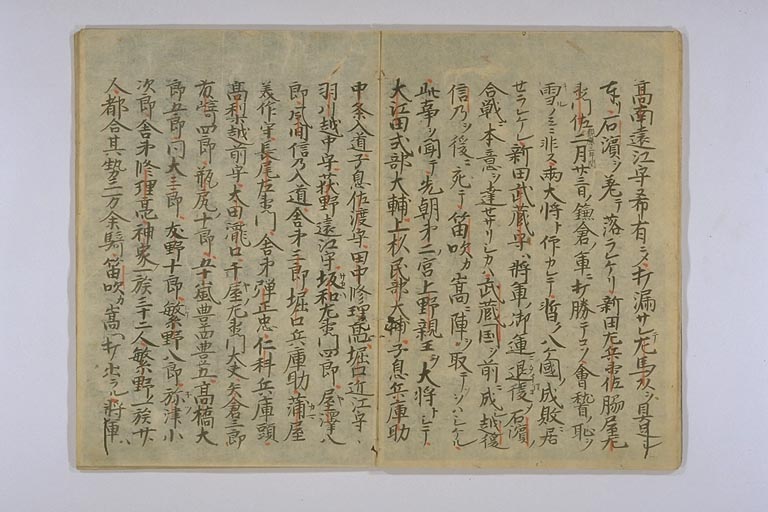 高南遠江守希有ニシテ打漏サレ左馬久ヲ具足シ
テ石濱ヲ差テ落ラレケリ新田左兵衛佐脇屋左
衛門佐二月廿三日ノ鎌倉ノ軍ニ打勝テコソ會稽ノ恥ヲ
雪ノミニ非ス両大将ト仰カレテ暫ク八ケ國ノ成敗ニ居
セラレケレ新田武蔵守ハ将軍ノ御運ニ退復石濱ノ
合戦ニ本意ヲ達セサリシカハ武蔵国ヲ前ニ成シ越後
信乃ヲ後ニ宛テ笛吹カ嵩ニ陣ヲ取テソハシケル
此事ヲ聞テ先朝第二宮上野親王ヲ大将トシテ
大江田式部大輔上杉民部大輔子息兵庫助
中条入道子息佐渡守田中修理亮堀口近江守
羽川越中守荻野遠江守坂和左衛門四郎屋澤八
郎風間信乃入道舎弟三郎堀口兵庫助蒲屋
美作守長尾左衛門舎弟弾正忠仁科兵庫頭
高梨越前守太田瀧口千屋左衛門大夫矢倉三郎
四郎瓶尻十郎五十嵐豊四豊五高橋大
郎五郎同大三郎友野十郎繁野八郎祢津小
次郎舎弟修理亮神家一族三十三人繁野一族廿
人都合其勢二万余騎笛吹カ嵩ヘ打出ラル将軍ハ